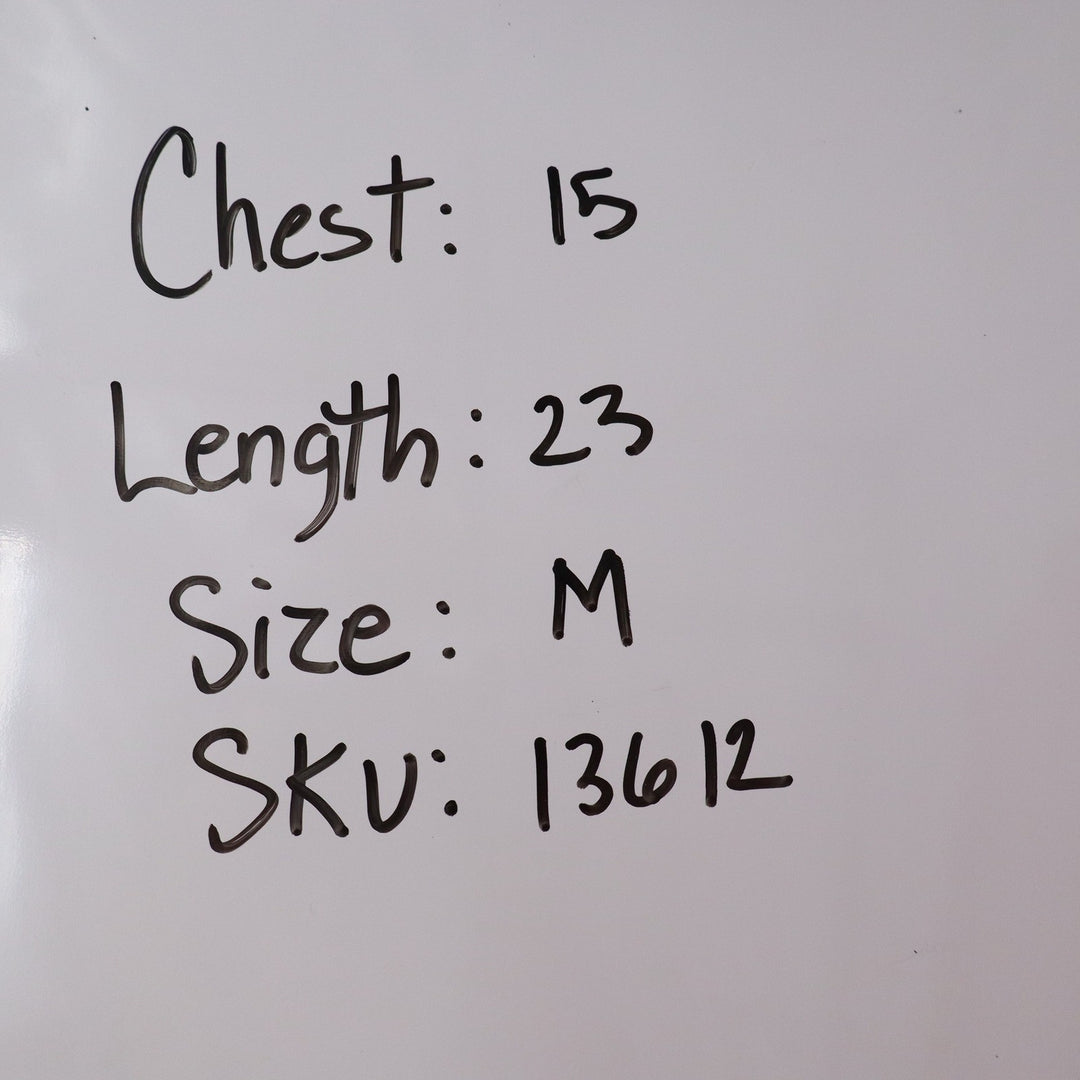 Chest: 15
Length: 23
Size: M
SKU: 13612